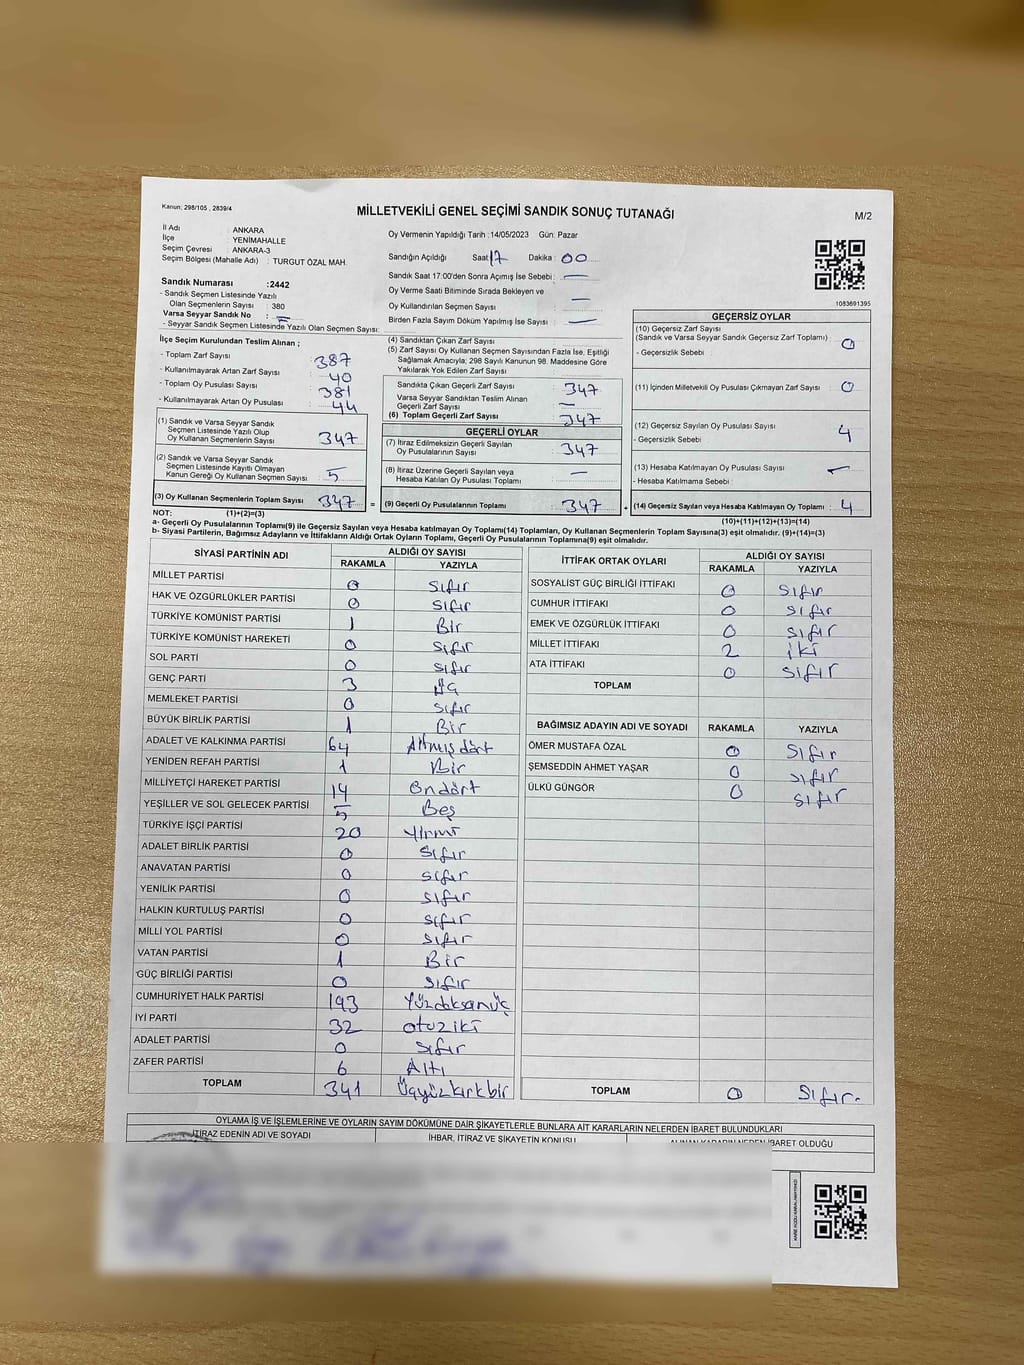 Kanun; 298/105 , 2839/4
MİLLETVEKİLİ GENEL SEÇİMİ SANDIK SONUÇ TUTANAĞI
M/2
İl Adı : ANKARA
İlçe : YENİMAHALLE
Seçim Çevresi : ANKARA-3
Seçim Bölgesi (Mahalle Adı) : TURGUT ÖZAL MAH.
Sandık Numarası :2442
- Sandık Seçmen Listesinde Yazılı
Olan Seçmenlerin Sayısı : 380
Varsa Seyyar Sandık No : –
- Seyyar Sandık Seçmen Listesinde Yazılı Olan Seçmen Sayısı:
Oy Vermenin Yapıldığı Tarih :14/05/2023 Gün: Pazar
Sandığın Açıldığı Saat 17 Dakika : 00
Sandık Saat 17:00'den Sonra Açımış İse Sebebi : —
Oy Verme Saati Bitiminde Sırada Bekleyen ve
Oy Kullandırılan Seçmen Sayısı —
Birden Fazla Sayım Döküm Yapılmış İse Sayısı : —
1083691395
İlçe Seçim Kurulundan Teslim Alınan ;
- Toplam Zarf Sayısı : 387
- Kullanılmayarak Artan Zarf Sayısı : 40
- Toplam Oy Pusulası Sayısı : 381
- Kullanılmayarak Artan Oy Pusulası : 44
(1) Sandık ve Varsa Seyyar Sandık
Seçmen Listesinde Yazılı Olup
Oy Kullanan Seçmenlerin Sayısı : 347
(2) Sandık ve Varsa Seyyar Sandık
Seçmen Listesinde Kayıtlı Olmayan
Kanun Gereği Oy Kullanan Seçmen Sayısı : 5
(3) Oy Kullanan Seçmenlerin Toplam Sayısı : 347 =
(4) Sandıktan Çıkan Zarf Sayısı :
(5) Zarf Sayısı Oy Kullanan Seçmen Sayısından Fazla İse, Eşitliği
Sağlamak Amacıyla; 298 Sayılı Kanunun 98. Maddesine Göre
Yakılarak Yok Edilen Zarf Sayısı :
Sandıkta Çıkan Geçerli Zarf Sayısı : 347
Varsa Seyyar Sandıktan Teslim Alınan
Geçerli Zarf Sayısı : —
(6) Toplam Geçerli Zarf Sayısı : 347
GEÇERLİ OYLAR
(7) İtiraz Edilmeksizin Geçerli Sayılan
Oy Pusulalarının Sayısı : 347
(8) İtiraz Üzerine Geçerli Sayılan veya
Hesaba Katılan Oy Pusulası Toplamı : —
(9) Geçerli Oy Pusulalarının Toplamı : 347 +
GEÇERSİZ OYLAR
(10) Geçersiz Zarf Sayısı
(Sandık ve Varsa Seyyar Sandık Geçersiz Zarf Toplamı) : 0
- Geçersizlik Sebebi :
(11) İçinden Milletvekili Oy Pusulası Çıkmayan Zarf Sayısı : 0
(12) Geçersiz Sayılan Oy Pusulası Sayısı : 4
- Geçersizlik Sebebi :
(13) Hesaba Katılmayan Oy Pusulası Sayısı : –
- Hesaba Katılmama Sebebi :
(14) Geçersiz Sayılan veya Hesaba Katılmayan Oy Toplamı : 4
NOT: (1)+(2)=(3)
(10)+(11)+(12)+(13)=(14)
a- Geçerli Oy Pusulalarının Toplamı(9) ile Geçersiz Sayılan veya Hesaba katılmayan Oy Toplamı(14) Toplamları, Oy Kullanan Seçmenlerin Toplam Sayısına(3) eşit olmalıdır. (9)+(14)=(3)
b- Siyasi Partilerin, Bağımsız Adayların ve İttifakların Aldığı Ortak Oyların Toplamı, Geçerli Oy Pusulalarının Toplamına(9) eşit olmalıdır.
SİYASİ PARTİNİN ADI ALDIĞI OY SAYISI
RAKAMLA YAZIYLA
MİLLET PARTİSİ 0 Sıfır
HAK VE ÖZGÜRLÜKLER PARTİSİ 0 Sıfır
TÜRKİYE KOMÜNİST PARTİSİ 1 Bir
TÜRKİYE KOMÜNİST HAREKETİ 0 Sıfır
SOL PARTİ 0 Sıfır
GENÇ PARTİ 3 Üç
MEMLEKET PARTİSİ 0 Sıfır
BÜYÜK BİRLİK PARTİSİ 1 Bir
ADALET VE KALKINMA PARTİSİ 64 Altmışdört
YENİDEN REFAH PARTİSİ 1 Bir
MİLLİYETÇİ HAREKET PARTİSİ 14 Ondört
YEŞİLLER VE SOL GELECEK PARTİSİ 5 Beş
TÜRKİYE İŞÇİ PARTİSİ 20 Yirmi
ADALET BİRLİK PARTİSİ 0 Sıfır
ANAVATAN PARTİSİ 0 Sıfır
YENİLİK PARTİSİ 0 Sıfır
HALKIN KURTULUŞ PARTİSİ 0 Sıfır
MİLLİ YOL PARTİSİ 0 Sıfır
VATAN PARTİSİ 1 Bir
GÜÇ BİRLİĞİ PARTİSİ 0 Sıfır
CUMHURİYET HALK PARTİSİ 193 Yüzdoksanüç
İYİ PARTİ 32 otuziki
ADALET PARTİSİ 0 Sıfır
ZAFER PARTİSİ 6 Altı
TOPLAM 341 Üçyüzkırkbir
İTTİFAK ORTAK OYLARI ALDIĞI OY SAYISI
RAKAMLA YAZIYLA
SOSYALİST GÜÇ BİRLİĞİ İTTİFAKI 0 Sıfır
CUMHUR İTTİFAKI 0 Sıfır
EMEK VE ÖZGÜRLÜK İTTİFAKI 0 Sıfır
MİLLET İTTİFAKI 2 iki
ATA İTTİFAKI 0 Sıfır
TOPLAM
BAĞIMSIZ ADAYIN ADI VE SOYADI RAKAMLA YAZIYLA
ÖMER MUSTAFA ÖZAL 0 Sıfır
ŞEMSEDDİN AHMET YAŞAR 0 Sıfır
ÜLKÜ GÜNGÖR 0 Sıfır
TOPLAM 0 Sıfır.
OYLAMA İŞ VE İŞLEMLERİNE VE OYLARIN SAYIM DÖKÜMÜNE DAİR ŞİKAYETLERLE BUNLARA AİT KARARLARIN NELERDEN İBARET BULUNDUKLARI
İTİRAZ EDENİN ADI VE SOYADI İHBAR, İTİRAZ VE ŞİKAYETİN KONUSU ALINAN KARARIN NEDEN İBARET OLDUĞU